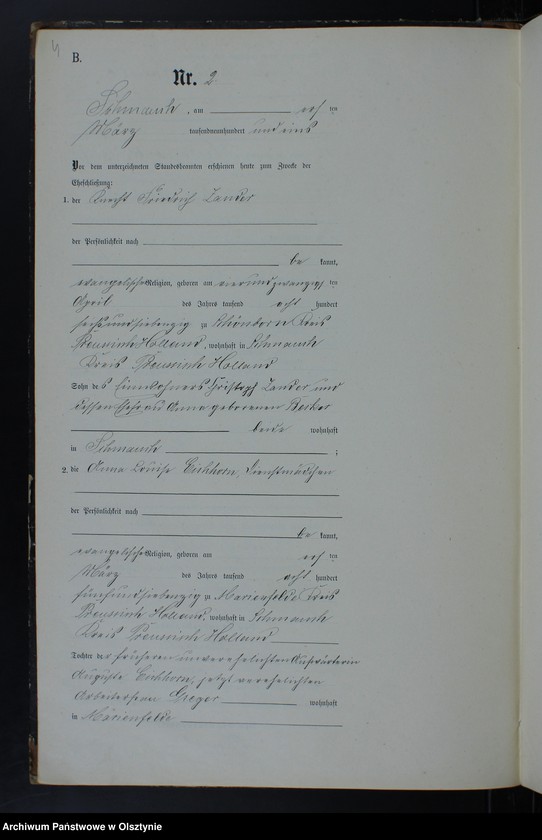 4
B.
Nr. 2
Schmauch, am ten
März tausendneunhundert und eins
Vor dem unterzeichneten Standesbeamten erschienen heute zum Zwecke der
Eheschließung:
1. der Knecht Friedrich Zander
der Persönlichkeit nach
be kannt,
evangelischer Religion, geboren am vierundzwanzigsten
April des Jahres tausend acht hundert
sechsundsiebenzig zu Schönborn Kreis
Preussisch Holland, wohnhaft in Schmauch
Kreis Preussisch Holland
Sohn des Einwohners Christoph Zander und
dessen Ehefrau Anna geborenen Becker
beide wohnhaft
in Schmauch ;
2. die Anna Louise Eichhorn, Dienstmädchen
der Persönlichkeit nach
be kannt,
evangelischer Religion, geboren am ten
März des Jahres tausend acht hundert
fünfundsiebenzig zu Marienfelde Kreis
Preussisch Holland, wohnhaft in Schmauch
Kreis Preussisch Holland
Tochter der früheren unverehelichten Aufwärterin
Auguste Eichhorn, jetzt verehelichten
Arbeiterfrau wohnhaft
in Marienfelde
Archiwum Państwowe w Olsztynie